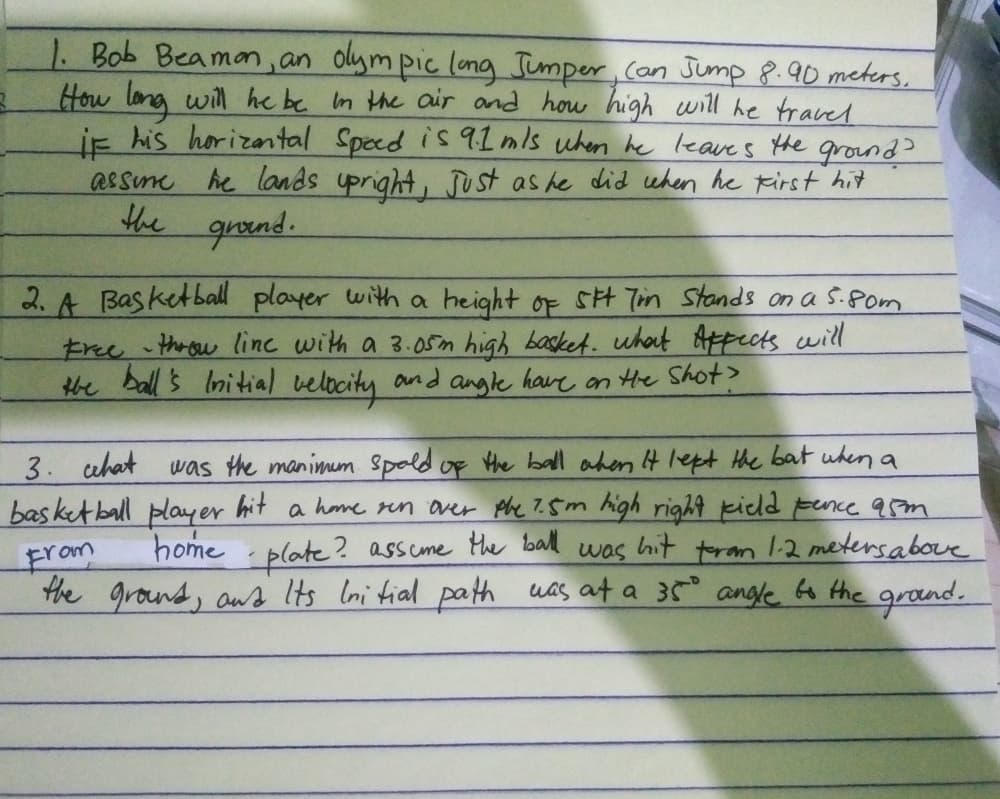 1. Bob Beamon, an Olympic long Jumper, can Jump 8.90 meters.
How long will he be in the air and how high will he travel
if his horizontal Speed is 9.1 m/s when he leaves the ground?
assume he lands upright, Just as he did when he first hit
the ground.
2. A Basketball player with a height of 5ft 7in Stands on a 5.80m
free-throw line with a 3.05m high basket. what Affects will
the ball's Initial velocity and angle have on the Shot?
3. what was the manimum speed of the ball when it left the bat when a
basketball player hit a home run over the 7.5m high right field fence 95m
from home plate? assume the ball was hit from 1.2 meters above
the ground, and Its Initial path was at a 35° angle to the ground.